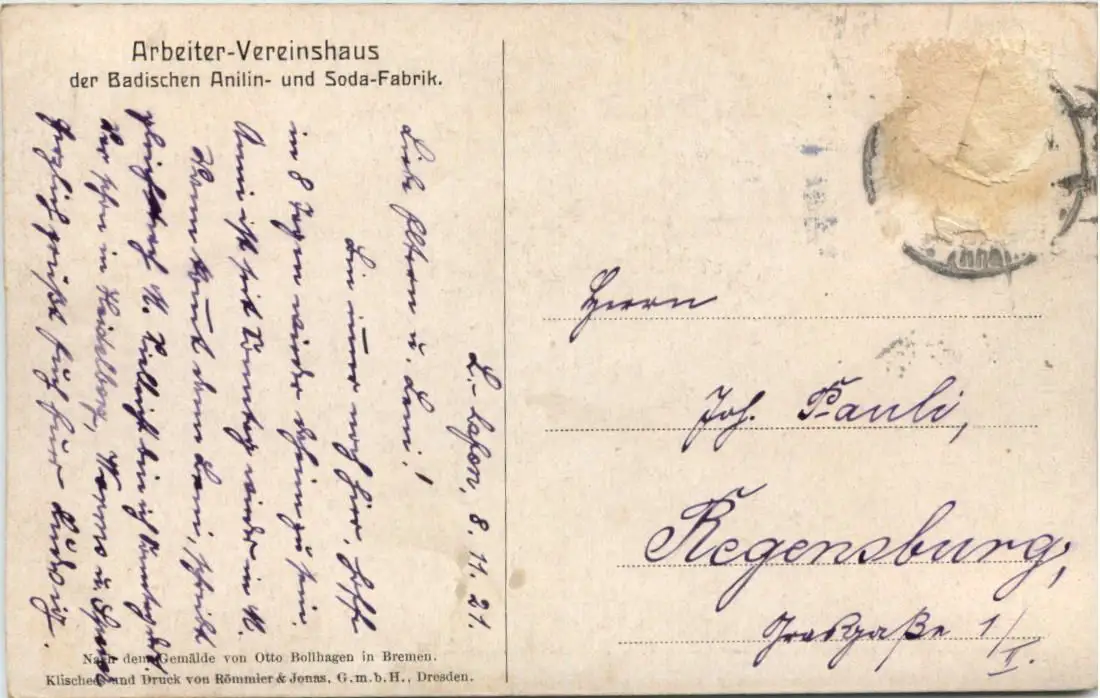 Arbeiter-Vereinshaus
der Badischen Anilin- und Soda-Fabrik.
L.-hafen, 8. 11. 21.
Liebe Eltern u. Leni!
Bin immer noch hier, hoffe
in 8 Tagen wieder daheim zu sein.
Anni ist seit Sonntag wieder in N.
Wenn kommt denn Leni, schreibt
gleich nach N. Vielleicht bin ich Sonntag da.
War schon in Heidelberg, Worms u. Speyer
Herzlich grüßt Euch Euer Ludwig.
Herrn
Joh. Pauli,
Regensburg,
Grasgaße 1/I.
Nach dem Gemälde von Otto Bollhagen in Bremen.
Klischee und Druck von Römmler & Jonas, G.m.b.H., Dresden.